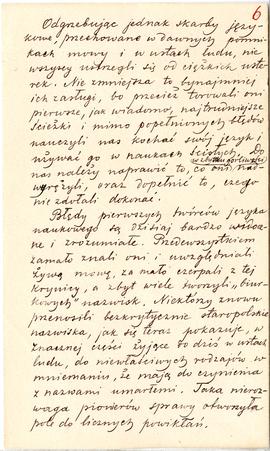 6
Odgrzebując jednak skarby języ-
kowe, przechowane w dawnych pomni-
kach mowy i w ustach ludu, nie
wszyscy ustrzegli się od ciężkich uste-
rek. Nie zmniejsza to bynajmniej
ich zasługi, bo przecież torowali oni
pierwsze, jak wiadomo, najtrudniejsze
ścieżki i mimo popełnionych błędów
nauczyli nas kochać swój język i
używać go w naukach ścisłych. Do
nas należy naprawić to, co oni
w zbytku gorliwości
nad-
wyrężyli, oraz dopełnić to, czego
nie zdołali dokonać.
Błędy pierwszych twórców języka
naukowego są dzisiaj bardzo widocz-
ne i zrozumiałe. Przedewszystkiem
zamało znali oni i uwzględniali
żywą mowę, za mało czerpali z tej
krynicy, a zbyt wiele tworzyli „biur-
kowych" nazwisk. Niektórzy znowu
przenosili bezkrytycznie staropolskie
nazwiska, jak się teraz pokazuje, w
znacznej części żyjące do dziś w ustach
ludu, do niewłaściwych rodzajów w
mniemaniu, że mają do czynienia
z nazwami umarłemi. Taka nieroz-
waga pionierów sprawy otworzyła
pole do licznych powikłań.